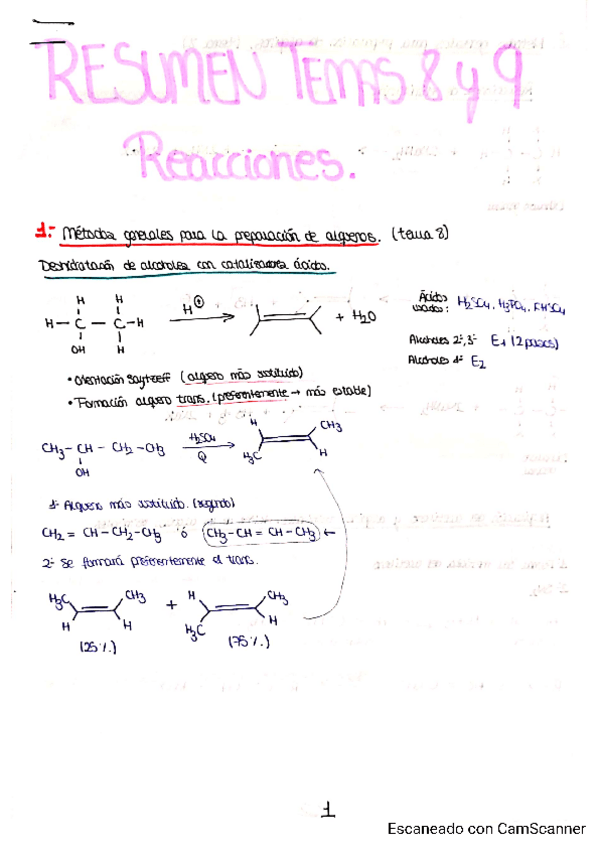 RESUMEN TEMAS 8 y 9
Reacciones.
1:- Métodos generales para la preparación de alquenos. (tema 8)
Deshidratación de alcoholes con catalizadores ácidos.
H H
H — C — C — H
OH H
H⊕
+ H2O
Ácidos usados: H2SO4, H3PO4, KHSO4
Alcoholes 2º, 3º E1 (2 pasos)
Alcoholes 1º E2
• Orientación Saytzeff (alqueno más sustituido)
• Formación alqueno trans. (preferentemente → más estable)
CH3 — CH — CH2 — CH3
OH
H2SO4
Q
H CH3
H3C H
1º Alqueno más sustituido. (segundo)
CH2 = CH — CH2 — CH3 ó CH3 — CH = CH — CH3 ←
2º Se formará preferentemente el trans.
H3C CH3 + H CH3
H H H3C H
(25%) (75%)
1
Escaneado con CamScanner